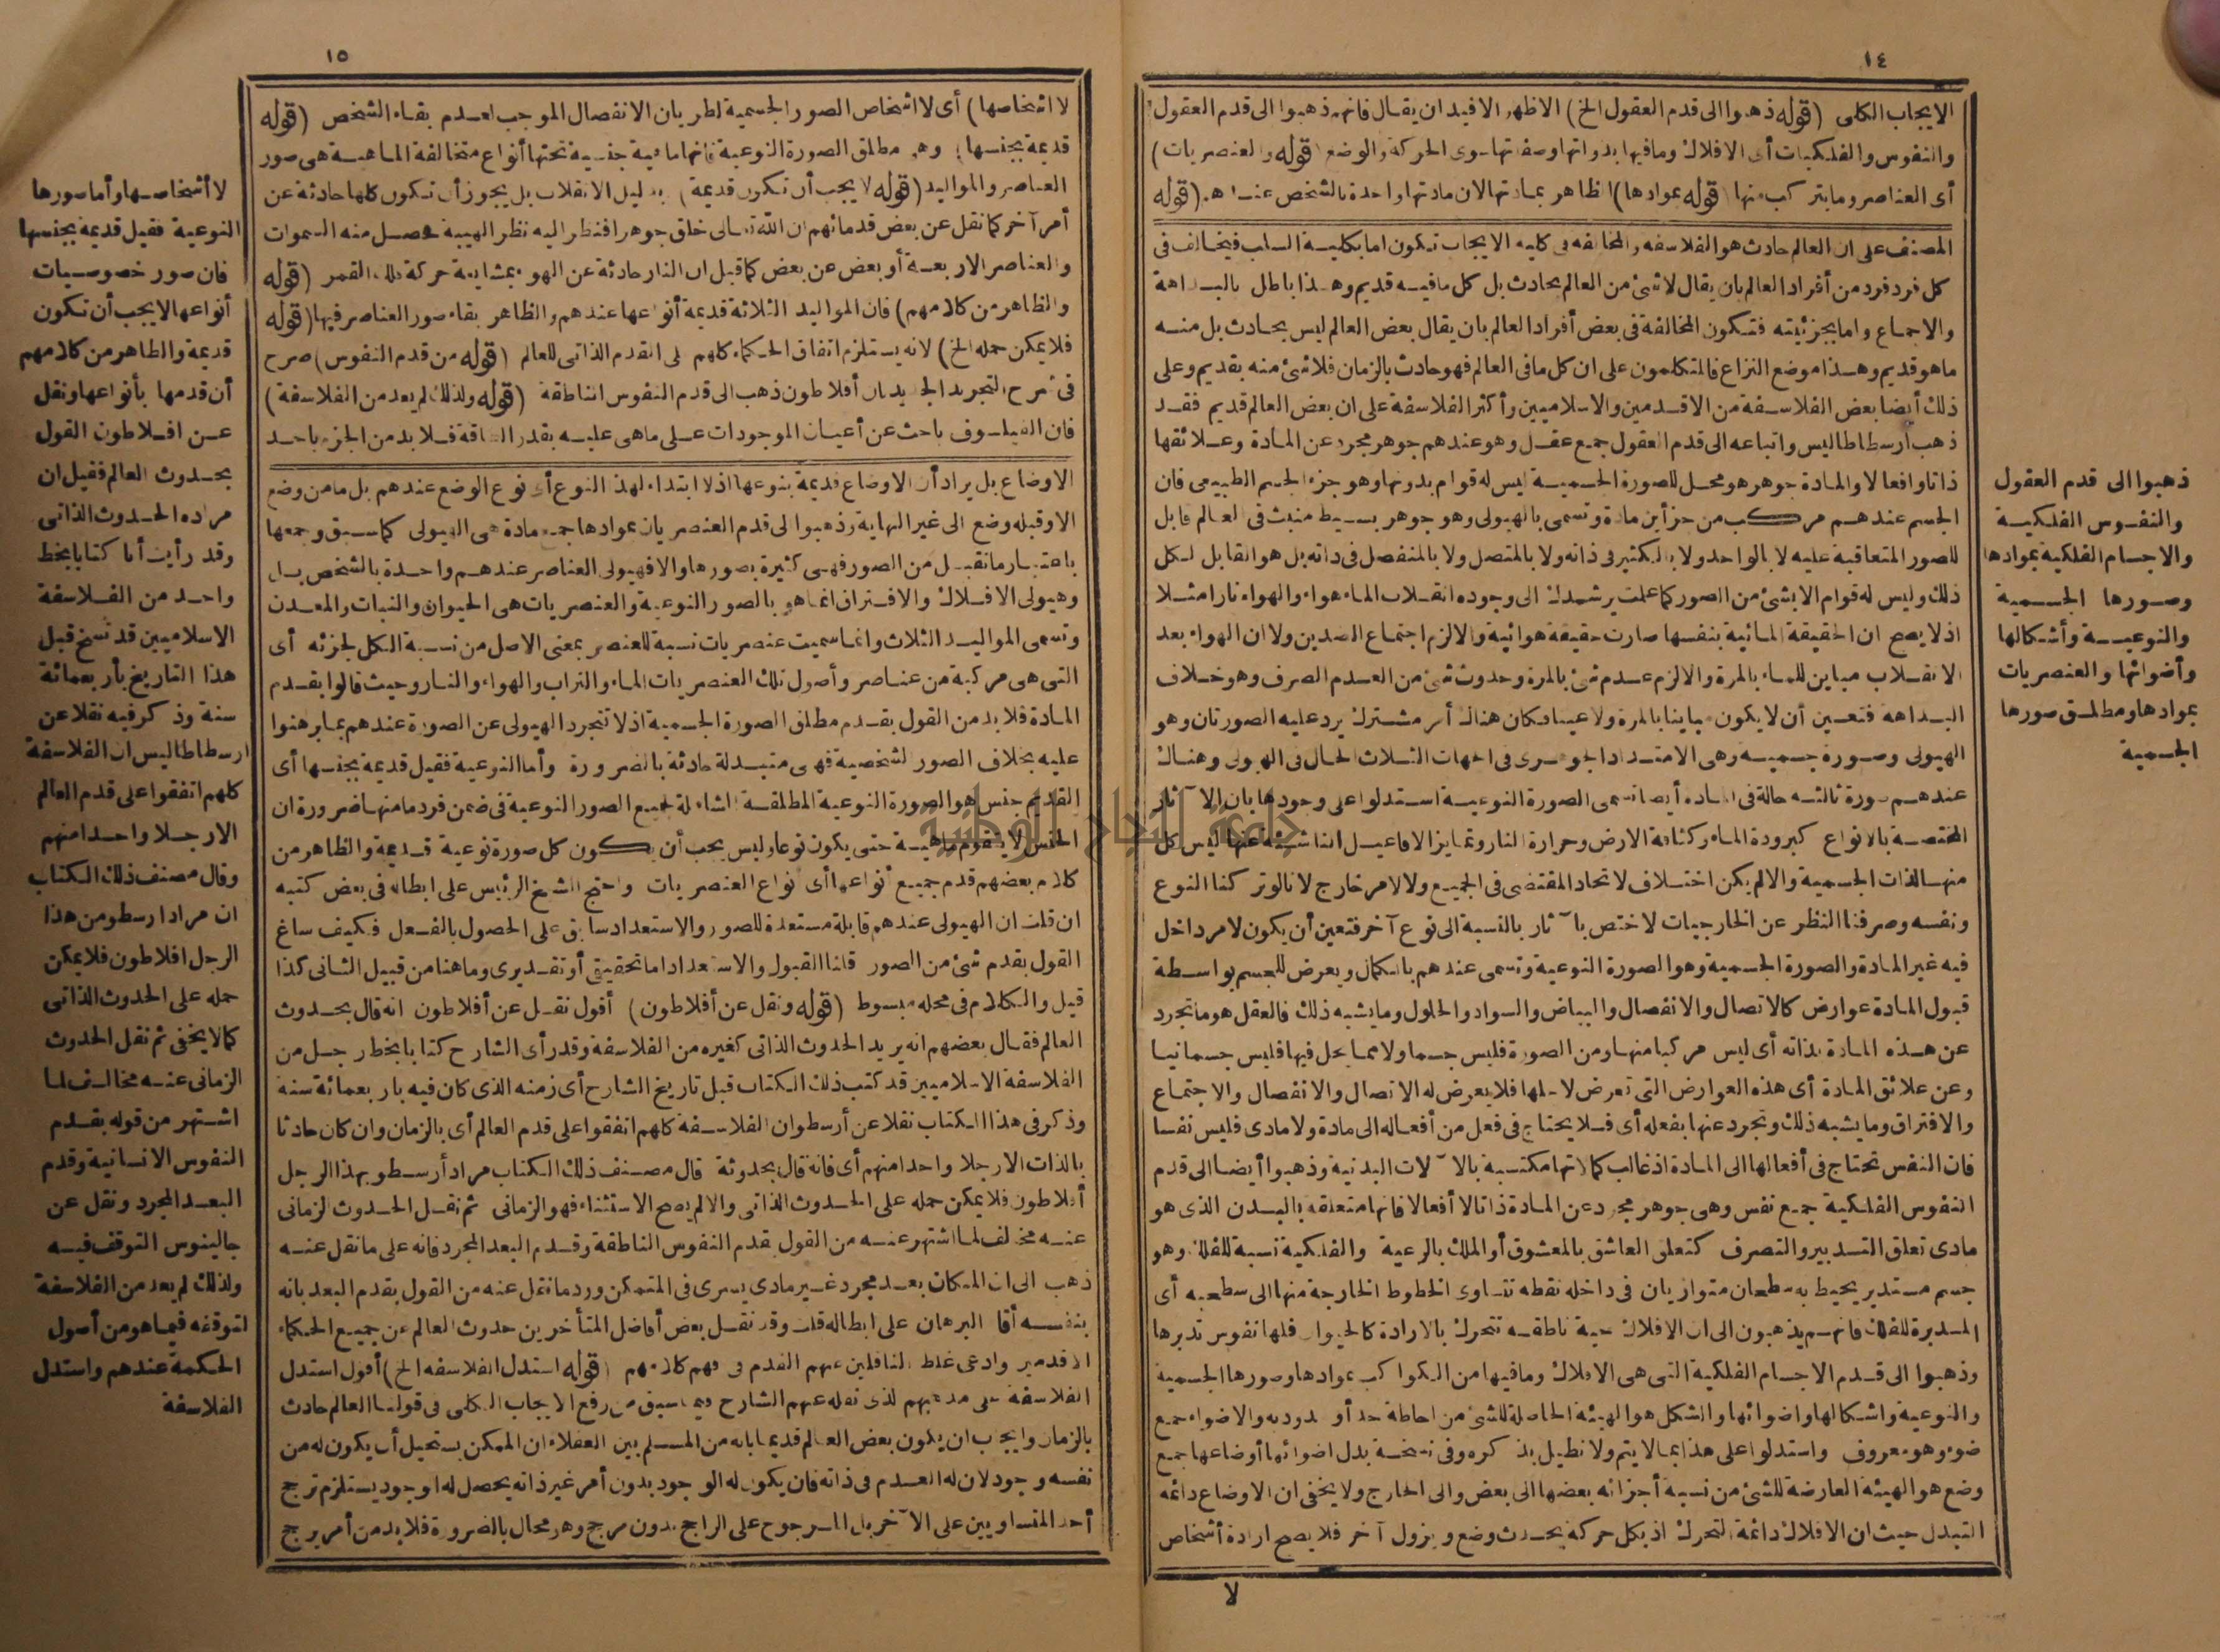 ١٤
الايجاب الكلى (قوله ذهبوا الى قدم العقول الخ) الاظهر الافيد ان يقال فانهم ذهبوا الى قدم العقول
والنفوس والفلكيات أى الافلاك وما فيها بذواتها وصفاتها سوى الحركة والوضع (قوله والعنصريات)
أى العناصر وما يتركب منها (قوله بموادها) الظاهر بمادتها لان مادتها واحدة بالشخص عندهم (قوله
المصنف على ان العالم حادث هو الفلاسفة والمخالفة فى كلية الايجاب تكون اما بكلية السلب فيخالف فى
كل فرد فرد من أفراد العالم بان يقال لا شئ من العالم بحادث بل كل ما فيه قديم وهذا باطل بالبداهة
والاجماع واما بجزئيته فتكون المخالفة فى بعض أفراد العالم بان يقال بعض العالم ليس بحادث بل منه
ما هو قديم وهذا موضع النزاع فالمتكلمون على ان كل ما فى العالم فهو حادث بالزمان فلا شئ منه بقديم وعلى
ذلك أيضا بعض الفلاسفة من الاقدمين والاسلاميين وأكثر الفلاسفة على ان بعض العالم قديم فقد
ذهب ارسطاطاليس واتباعه الى قدم العقول جمع عقل وهو عندهم جوهر مجرد عن المادة وعلائقها
ذاتا وافعالا والمادة جوهر هو محل للصورة الجسمية ليس له قوام بدونها وهو جزء الجسم الطبيعى فان
الجسم عندهم مركب من جزأين مادة وتسمى بالهيولى وهو جوهر بسيط منبث فى العالم قابل
للصور المتعاقبة عليه لا بالواحد ولا بالكثير فى ذاته ولا بالمتصل ولا بالمنفصل فى ذاته بل هو القابل لكل
ذلك وليس له قوام الا بشئ من الصور كما علمت يرشدك الى وجوده انقلاب الماء هواء والهواء نارا مثلا
اذ لا يصح ان الحقيقة المائية بنفسها صارت حقيقة هوائية والا لزم اجتماع الضدين ولا ان الهواء بعد
الانقلاب مباين للماء بالمرة والا لزم عدم شئ بالمرة وحدوث شئ من العدم الصرف وهو خلاف
البداهة فتعين أن لا يكون مباينا بالمرة ولا عينا فكان هناك أمر مشترك يرد عليه الصورتان وهو
الهيولى وصورة جسمية وهى الامتداد الجوهرى فى الجهات الثلاث الحال فى الهيولى وهناك
عندهم صورة ثالثة حالة فى المادة أيضا تسمى الصورة النوعية استدلوا على وجودها بان الآثار
المختصة بالانواع كبرودة الماء وكثافة الارض وحرارة النار وتمايز الافاعيل الناشئة عنها ليس كل
منها لذات الجسمية والا لم يكن اختلاف لاتحاد المقتضى فى الجميع ولا لامر خارج لانا لو تركنا النوع
ونفسه وصرفنا النظر عن الخارجيات لاختص بآثار بالنسبة الى نوع آخر فتعين أن يكون لامر داخل
فيه غير المادة والصورة الجسمية وهو الصورة النوعية وتسمى عندهم بالكمال ويعرض للجسم بواسطة
قبول المادة عوارض كالاتصال والانفصال والبياض والسواد والحلول وما يشبه ذلك فالعقل هو ما تجرد
عن هذه المادة بذاته أى ليس مركبا منها ومن الصورة فليس جسما ولا مما يحل فيها فليس جسمانيا
وعن علائق المادة أى هذه العوارض التى تعرض لاجلها فلا يعرض له الاتصال والانفصال والاجتماع
والافتراق وما يشبه ذلك وتجرد عنها بفعله أى فلا يحتاج فى فعل من أفعاله الى مادة ولا مادى فليس نفسا
فان النفس تحتاج فى أفعالها الى المادة اذ غالب كمالاتها مكتسبة بالآلات البدنية وذهبوا أيضا الى قدم
النفوس الفلكية جمع نفس وهى جوهر مجرد عن المادة ذاتا لا أفعالا فانها متعلقة بالبدن الذى هو
مادى تعلق التدبير والتصرف كتعلق العاشق بالمعشوق أو الملك بالرعية والفلكية نسبة للفلك وهو
جسم مستدير يحيط به سطحان متوازيان فى داخله نقطة تتساوى الخطوط الخارجة منها الى سطحيه أى
المدبرة للفلك فانهم يذهبون الى ان الافلاك حية ناطقة تتحرك بالارادة كالحيوان فلها نفوس تدبرها
وذهبوا الى قدم الاجسام الفلكية التى هى الافلاك وما فيها من الكواكب بموادها وصورها الجسمية
والنوعية واشكالها واضوائها والشكل هو الهيئة الحاصلة للشئ من احاطة حد أو حدود به والاضواء جمع
ضوء وهو معروف واستدلوا على هذا بما لا يتم ولا نطيل بذكره وفى نسخة بدل اضوائها أوضاعها جمع
وضع هو الهيئة العارضة للشئ من نسبة أجزائه بعضها الى بعض والى الخارج ولا يخفى ان الاوضاع دائمة
التبدل حيث ان الافلاك دائمة التحرك اذ بكل حركة يحدث وضع ويزول آخر فلا يصح ارادة أشخاص
لا
ذهبوا الى قدم العقول
والنفوس الفلكية
والاجسام الفلكية بموادها
وصورها الجسمية
والنوعية وأشكالها
وأضوائها والعنصريات
بموادها ومطلق صورها
الجسمية
١٥
لا اشخاصها) أى لا اشخاص الصور الجسمية لطريان الانفصال الموجب لعدم بقاء الشخص (قوله
قديمة بجنسها) وهو مطلق الصورة النوعية فانها ماهية جنسية تحتها أنواع متخالفة الماهية هى صور
العناصر والمواليد (قوله لا يجب أن تكون قديمة) بدليل الانقلاب بل يجوز أن تكون كلها حادثة عن
أمر آخر كما نقل عن بعض قدمائهم ان الله تعالى خلق جوهرا فنظر اليه نظر الهيبة فحصل منه السموات
والعناصر الاربعة أو بعض عن بعض كما قيل ان النار حادثة عن الهواء بمشايعة حركة فلك القمر (قوله
والظاهر من كلامهم) فان المواليد الثلاثة قديمة أنواعها عندهم والظاهر بقاء صور العناصر فيها (قوله
فلا يمكن حمله الخ) لانه يستلزم اتفاق الحكماء كلهم على القدم الذاتى للعالم (قوله من قدم النفوس) صرح
فى شرح التجريد الجديد ان أفلاطون ذهب الى قدم النفوس الناطقة (قوله ولذلك لم يعد من الفلاسفة)
فان الفيلسوف باحث عن أعيان الموجودات على ما هى عليه بقدر الطاقة فلا بد من الجزم باحد
الاوضاع بل يراد أن الاوضاع قديمة بنوعها اذ لا ابتداء لهذا النوع أى نوع الوضع عندهم بل ما من وضع
الا وقبله وضع الى غير النهاية وذهبوا الى قدم العنصريات بموادها جمع مادة هى الهيولى كما سبق وجمعها
باعتبار ما تقبل من الصور فهى كثيرة بصورها والا فهيولى العناصر عندهم واحدة بالشخص بل
وهيولى الافلاك والافتراق انما هو بالصور النوعية والعنصريات هى الحيوان والنبات والمعدن
وتسمى المواليد الثلاث وانما سميت عنصريات نسبة للعنصر بمعنى الاصل من نسبة الكل لجزئه أى
التى هى مركبة من عناصر وأصول تلك العنصريات الماء والتراب والهواء والنار وحيث قالوا بقدم
المادة فلا بد من القول بقدم مطلق الصورة الجسمية اذ لا تتجرد الهيولى عن الصورة عندهم بما برهنوا
عليه بخلاف الصور الشخصية فهى متبدلة حادثة بالضرورة وأما النوعية فقيل قديمة بجنسها أى
القديم جنس هو الصورة النوعية المطلقة الشاملة لجميع الصور النوعية فى ضمن فرد ما منها ضرورة ان
الجنس لا يتقوم ماهية حتى يكون نوعا وليس يجب أن يكون كل صورة نوعية قديمة والظاهر من
كلام بعضهم قدم جميع أنواعها أى أنواع العنصريات واحتج الشيخ الرئيس على ابطاله فى بعض كتبه
ان قلت ان الهيولى عندهم قابلة مستعدة للصور والاستعداد سابق على الحصول بالفعل فكيف ساغ
القول بقدم شئ من الصور قلنا القبول والاستعداد اما تحقيقى أو تقديرى وما هنا من قبيل الثانى كذا
قيل والكلام فى محله مبسوط (قوله ونقل عن أفلاطون) أقول نقل عن أفلاطون انه قال بحدوث
العالم فقال بعضهم انه يريد الحدوث الذاتى كغيره من الفلاسفة وقد رأى الشارح كتابا بخط رجل من
الفلاسفة الاسلاميين قد كتب ذلك الكتاب قبل تاريخ الشارح أى زمنه الذى كان فيه باربعمائة سنة
وذكر فى هذا الكتاب نقلا عن أرسطو ان الفلاسفة كلهم اتفقوا على قدم العالم أى بالزمان وان كان حادثا
بالذات الا رجلا واحدا منهم أى فانه قال بحدوثة قال مصنف ذلك الكتاب مراد أرسطو بهذا الرجل
أفلاطون فلا يمكن حمله على الحدوث الذاتى والا لم يصح الاستثناء فهو الزمانى ثم نقل الحدوث الزمانى
عنه مخالف لما اشتهر عنه من القول بقدم النفوس الناطقة وقدم البعد المجرد فانه على ما نقل عنه
ذهب الى ان المكان بعد مجرد غير مادى يسرى فى المتمكن ورد ما نقل عنه من القول بقدم البعد بانه
بنفسه أقام البرهان على ابطاله قلت وقد نقل بعض أفاضل المتأخرين حدوث العالم عن جميع الحكماء
الاقدمين وادعى غلط الناقلين عنهم القدم فى فهم كلامهم (قوله استدل الفلاسفة الخ) أقول استدل
الفلاسفة على مدعيهم الذى نقله عنهم الشارح فيما سبق من رفع الايجاب الكلى فى قولنا العالم حادث
بالزمان وايجاب ان يكون بعض العالم قديما بانه من المسلم بين العقلاء ان الممكن يستحيل أن يكون له من
نفسه وجود لان له العدم فى ذاته فان يكون له الوجود بدون أمر غير ذاته يحصل له الوجود يستلزم ترجح
أحد المتساويين على الآخر بل المرجوح على الراجح بدون مرجح وهو محال بالضرورة فلا بد من أمر يرجح
لا أشخاصها وأما صورها
النوعية فقيل قديمة بجنسها
فان صور خصوصيات
أنواعها لا يجب أن تكون
قديمة والظاهر من كلامهم
أن قدمها بأنواعها ونقل
عن افلاطون القول
بحدوث العالم فقيل ان
مراده الحدوث الذاتى
وقد رأيت أنا كتابا بخط
واحد من الفلاسفة
الاسلاميين قد نسخ قبل
هذا التاريخ بأربعمائة
سنة وذكر فيه نقلا عن
ارسطاطاليس ان الفلاسفة
كلهم اتفقوا على قدم العالم
الا رجلا واحدا منهم
وقال مصنف ذلك الكتاب
ان مراد ارسطو من هذا
الرجل افلاطون فلا يمكن
حمله على الحدوث الذاتى
كما لا يخفى ثم نقل الحدوث
الزمانى عنه مخالف لما
اشتهر من قوله بقدم
النفوس الانسانية وقدم
البعد المجرد ونقل عن
جالينوس التوقف فيه
ولذلك لم يعد من الفلاسفة
لتوقفه فيما هو من أصول
الحكمة عندهم واستدل
الفلاسفة
جامعة النجاح الوطنية